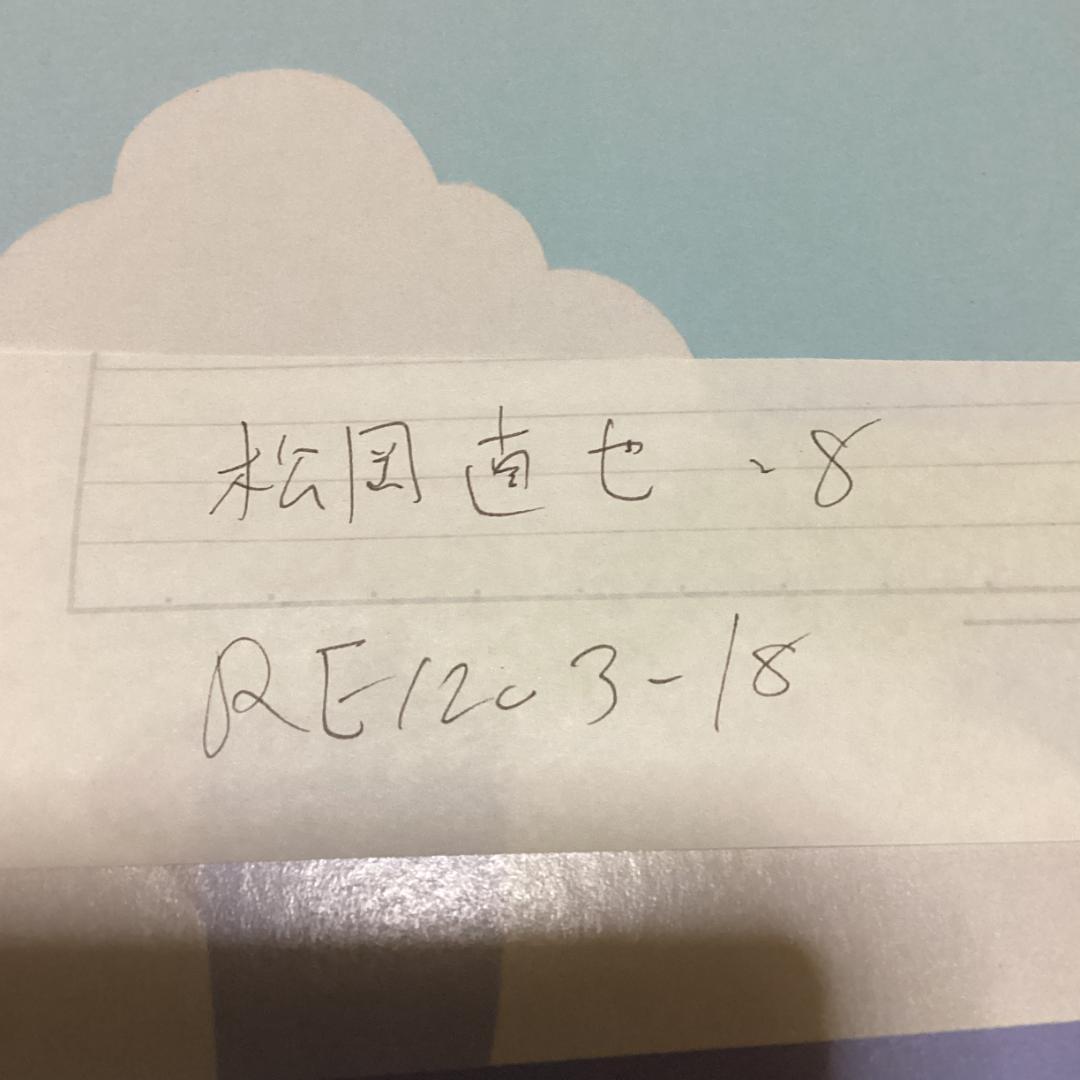 松岡直也 -8
RE1203-18